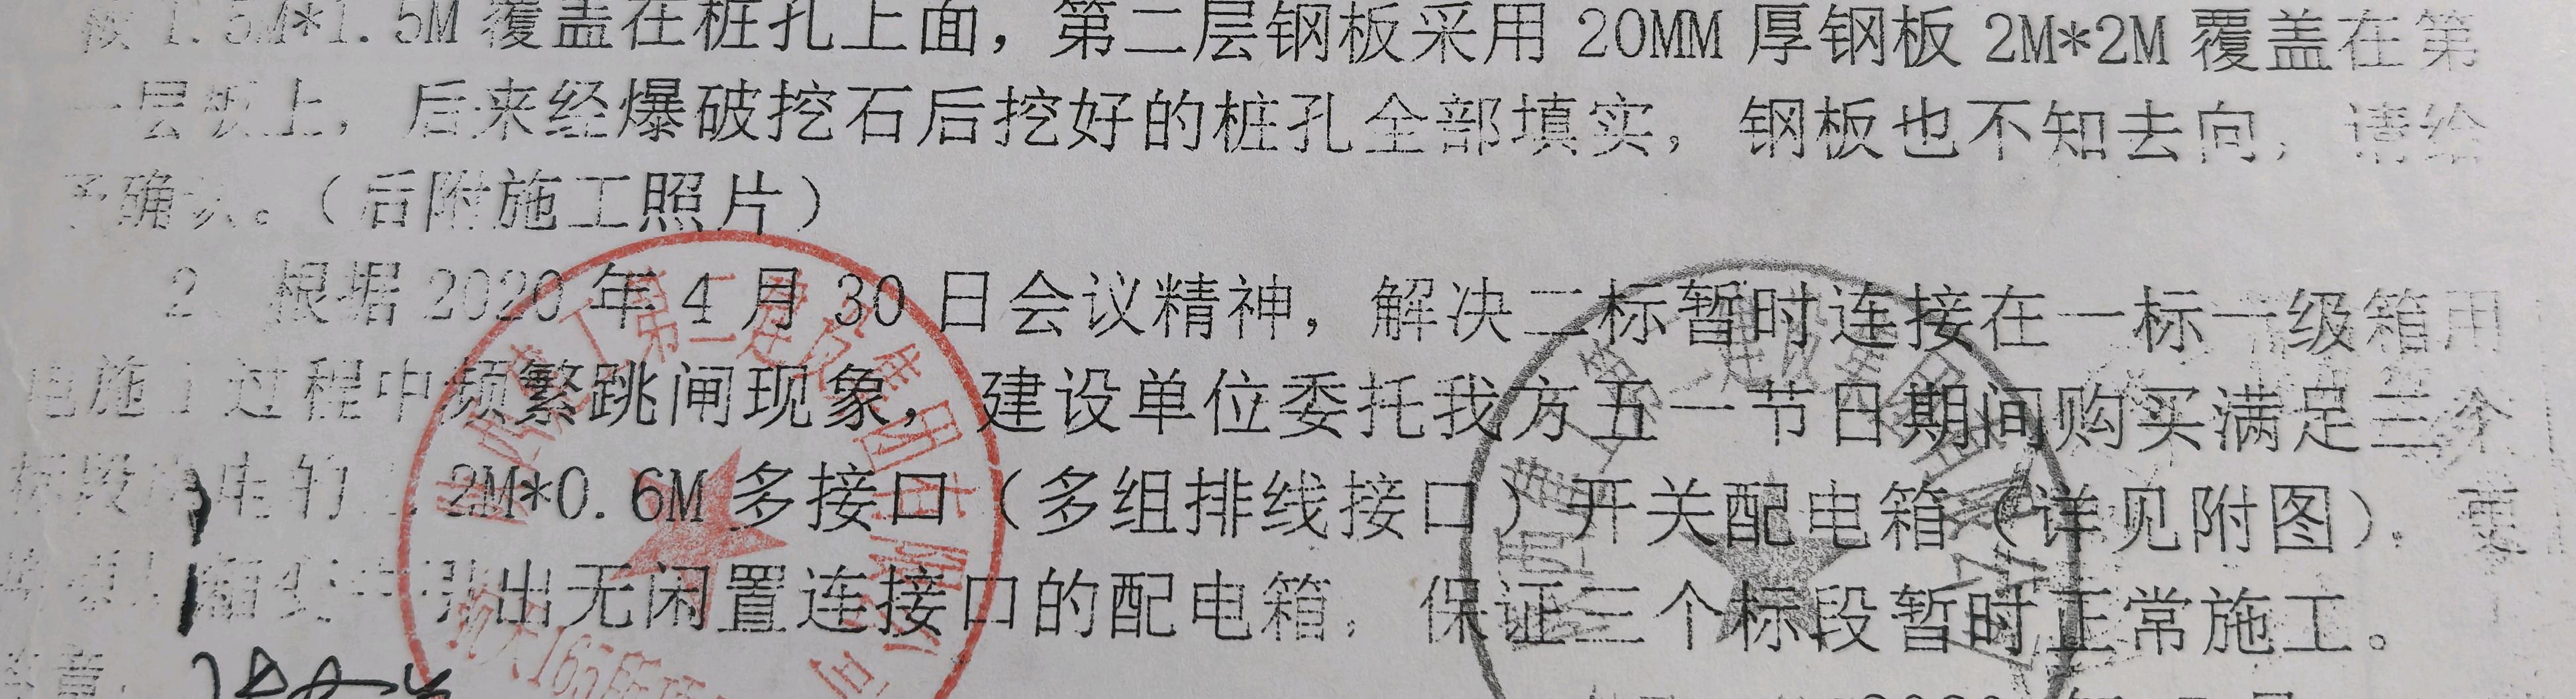 板1.5M*1.5M覆盖在桩孔上面，第二层钢板采用20MM厚钢板2M*2M覆盖在第
一层板上，后来经爆破挖石后挖好的桩孔全部填实，钢板也不知去向，请给
予确认。（后附施工照片）
2、根据2020年4月30日会议精神，解决二标暂时连接在一标一级箱用
电施工过程中频繁跳闸现象，建设单位委托我方五一节日期间购买满足三个
标段用电的1.2M*0.6M多接口（多组排线接口）开关配电箱（详见附图），更
箱变中引出无闲置连接口的配电箱，保证三个标段暂时正常施工。